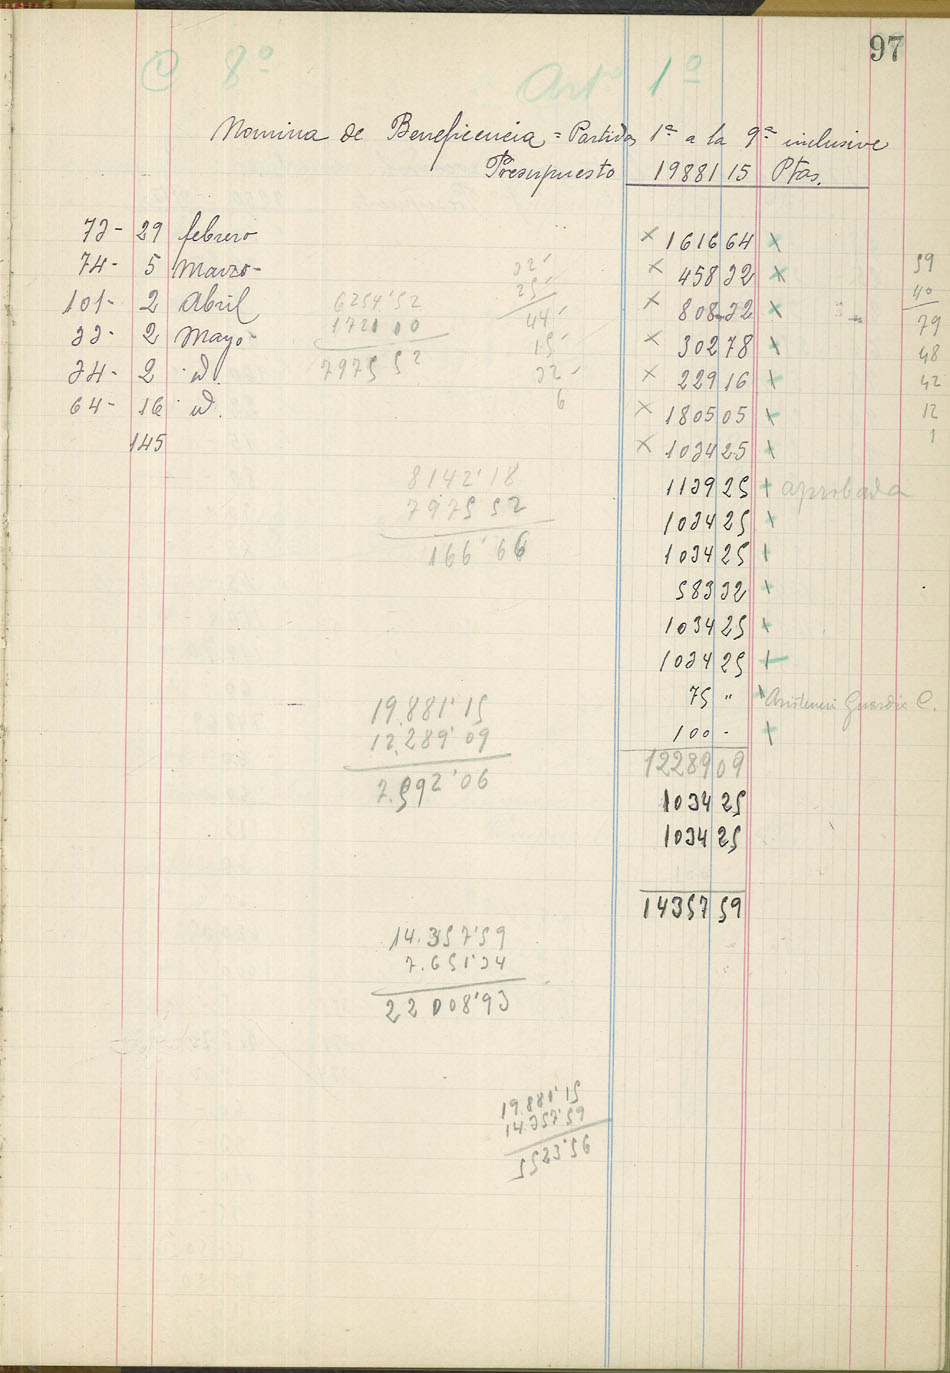 97
C 8º Artº 1º
Nomina de Beneficencia = Partidas 1ª a la 9ª inclusive
Presupuesto 19881 15 Ptas.
73- 29 febrero × 1616 64 ×
74- 5 Marzo- × 458 32 × 39
101- 2 Abril 6254'52 × 808 32 × 40
33- 2 Mayo 1721 00 44- × 302 78 × 79
34- 2 id. 7975 52 15- × 229 16 + 48
64- 16 id. 32- × 1805 05 + 42
145 6 × 1034 25 + 12
1
8142'18 1139 25 + aprobada
7975 52 1034 25 +
166'66 1034 25 +
583 32 +
1034 25 +
1034 25 +
19.881'15 75 " + Asistencia Guardia C.
12.289'09 100 - +
7.592'06 12289 09
1034 25
1034 25
14357 59
14.357'59
7.651'34
22008'93
19.881'15
14.357'59
5523'56